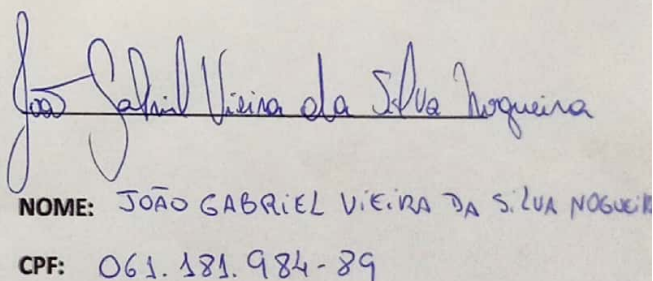 João Gabriel Vieira da Silva Nogueira
NOME: JOÃO GABRIEL VIEIRA DA SILVA NOGUEIR
CPF: 061.181.984-89